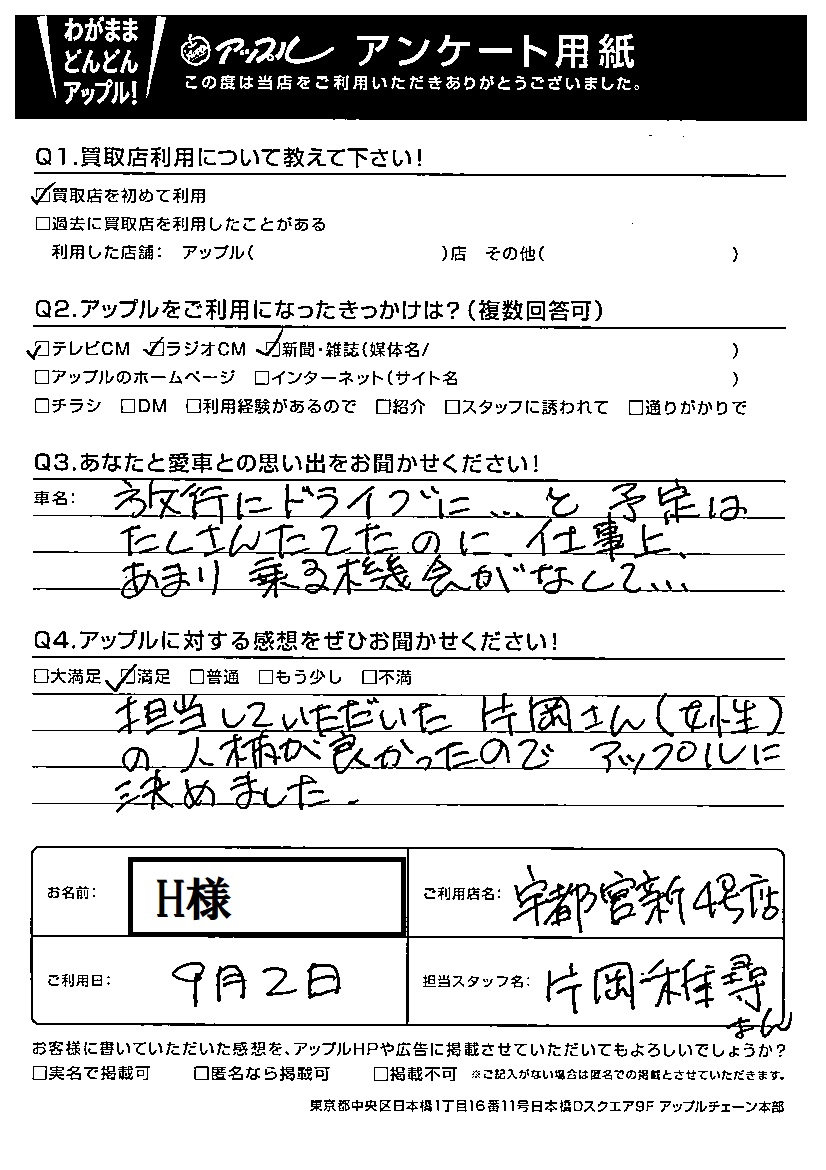 わがまま
どんどん
アップル!
アップル アンケート用紙
この度は当店をご利用いただきありがとうございました。
Q1.買取店利用について教えて下さい!
☑買取店を初めて利用
□過去に買取店を利用したことがある
利用した店舗: アップル( )店 その他( )
Q2.アップルをご利用になったきっかけは?(複数回答可)
☑テレビCM ☑ラジオCM ☑新聞・雑誌(媒体名/ )
□アップルのホームページ □インターネット(サイト名 )
□チラシ □DM □利用経験があるので □紹介 □スタッフに誘われて □通りがかりで
Q3.あなたと愛車との思い出をお聞かせください!
車名: 旅行にドライブに…と 予定は
たくさんたてたのに、仕事上、
あまり 乗る機会がなくて…
Q4.アップルに対する感想をぜひお聞かせください!
□大満足 ☑満足 □普通 □もう少し □不満
担当していただいた 片岡さん(女性)
の 人柄が良かったので アップルに
決めました。
お名前: H様
ご利用店名: 宇都宮新4号店
ご利用日: 9月2日
担当スタッフ名: 片岡 雅尋
さん
お客様に書いていただいた感想を、アップルHPや広告に掲載させていただいてもよろしいでしょうか?
□実名で掲載可 □匿名なら掲載可 □掲載不可 ※ご記入がない場合は匿名での掲載とさせていただきます。
東京都中央区日本橋1丁目16番11号日本橋Dスクエア9F アップルチェーン本部